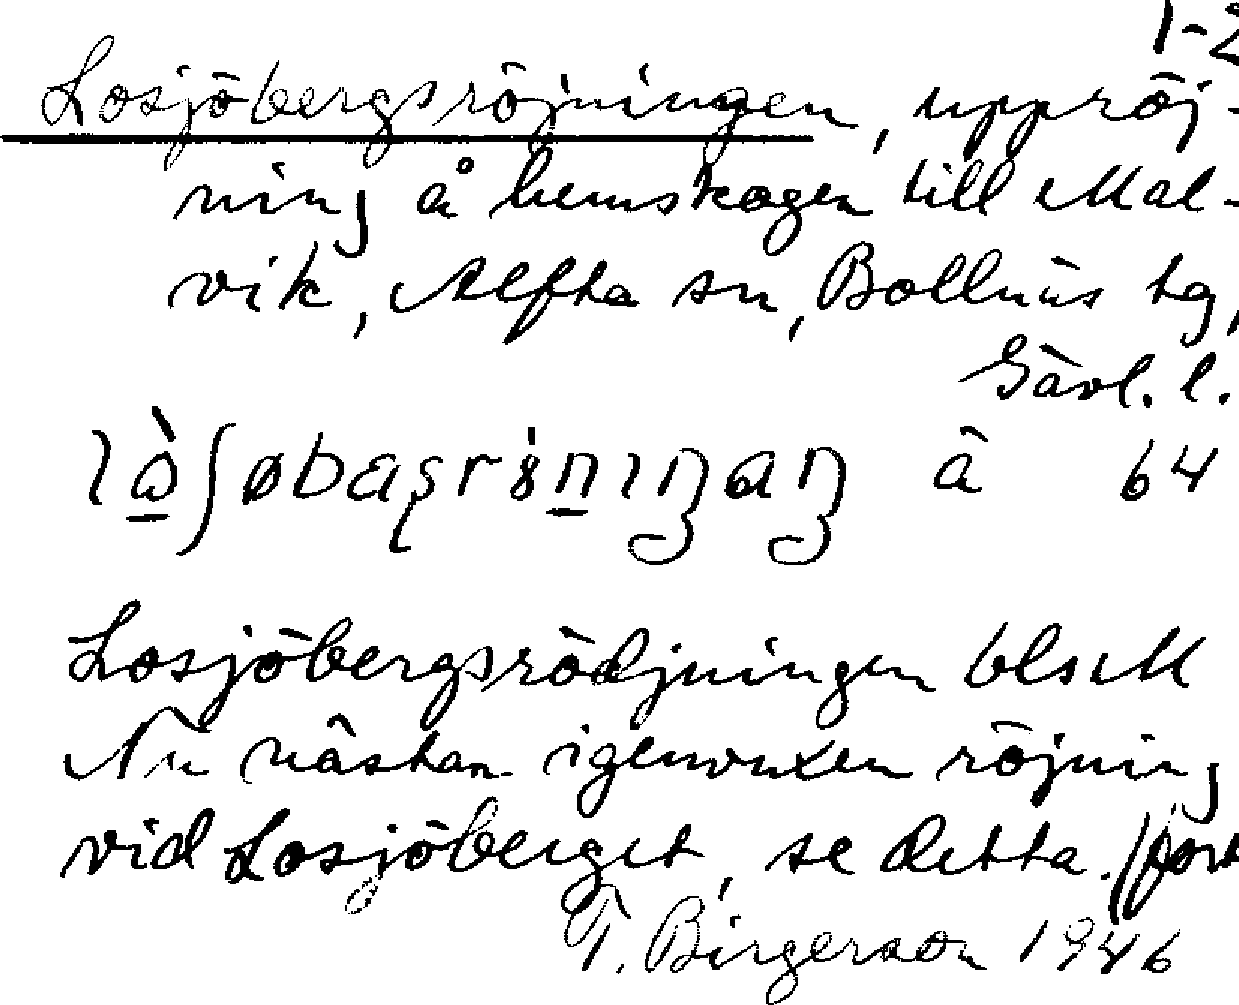 1-2
Losjöbergsröjningen, uppröj-
ning å hemskogen till Mal-
vik, Alfta sn, Bollnäs tg,
Gävl. l.
å 64
Losjöbergsrödjningen bls M
Nu nästan igenvuxen röjning
vid Losjöberget, se detta. (fort
T. Birgerson 1946